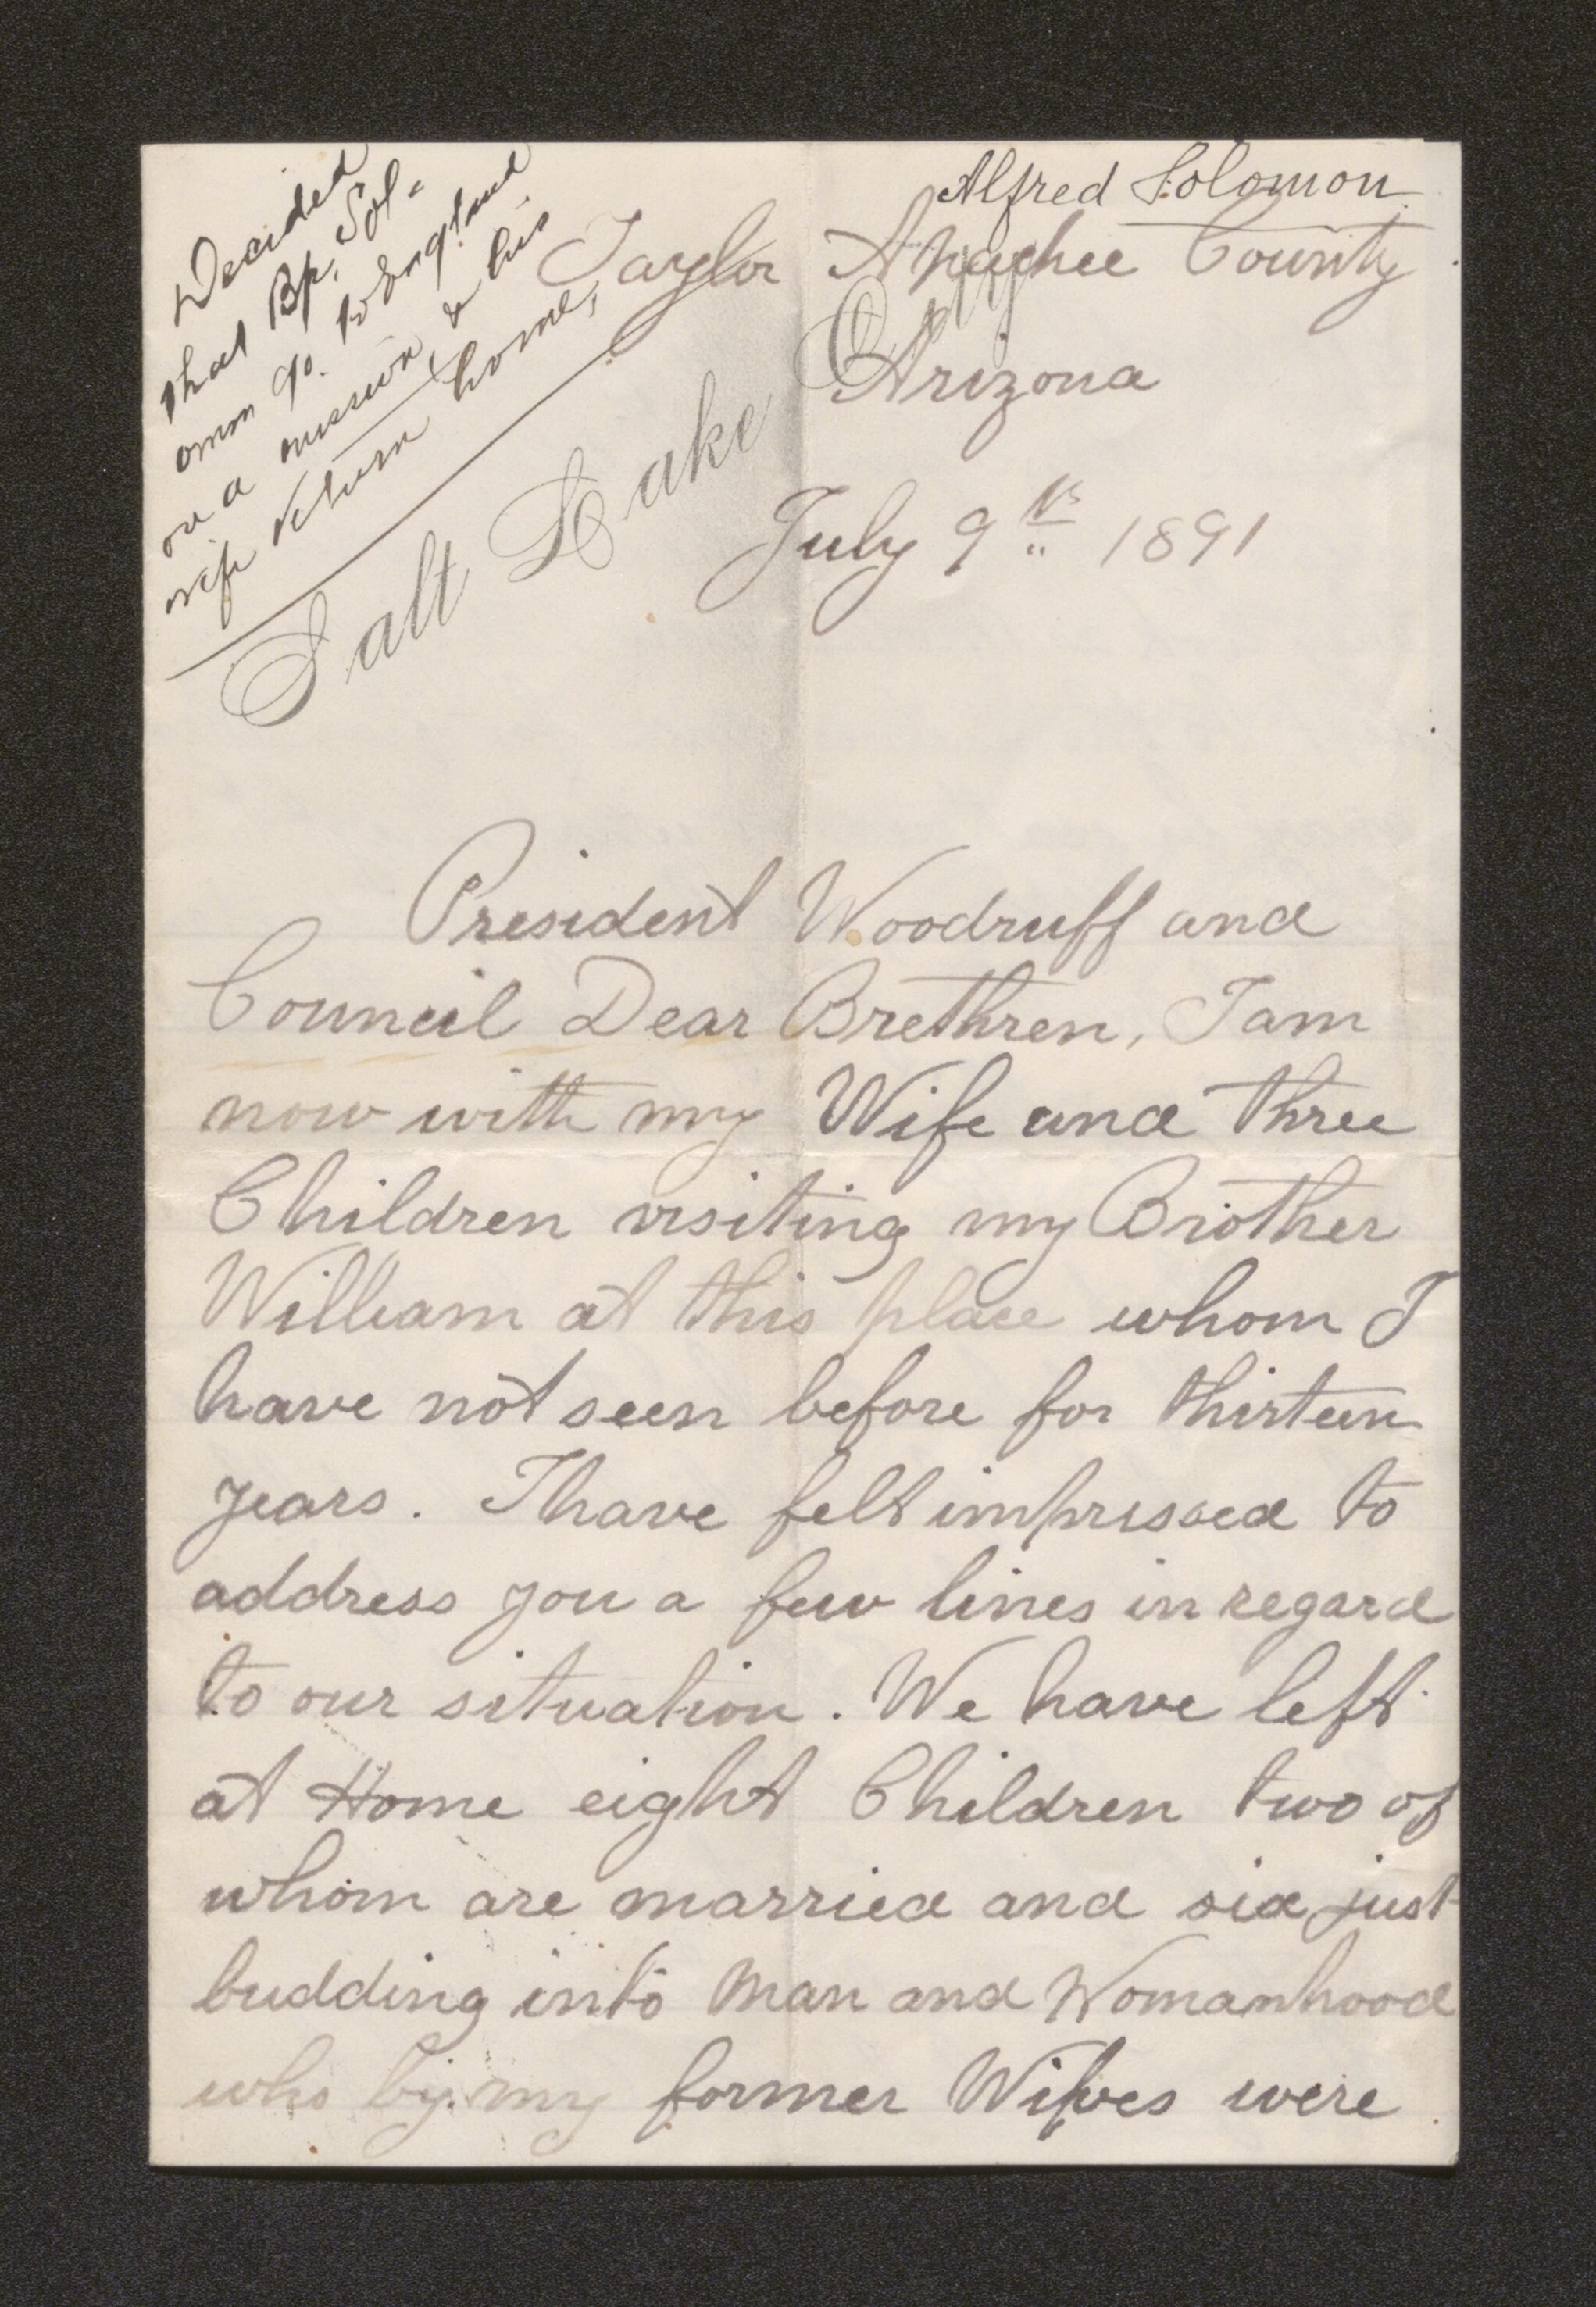 Decided
that Bp. Sol-
omon go to England
on a mission & his
wife return home,
Alfred Solomon
Taylor Apachee County
Arizona
Salt Lake City
July 9th 1891
President Woodruff and
Council Dear Brethren, I am
now with my Wife and three
Children visiting my Brother
William at this place whom I
have not seen before for thirteen
years. I have felt impressed to
address you a few lines in regard
to our situation. We have left
at Home eight Children two of
whom are married and six just
budding into Man and Womanhood
who by my former Wifves were